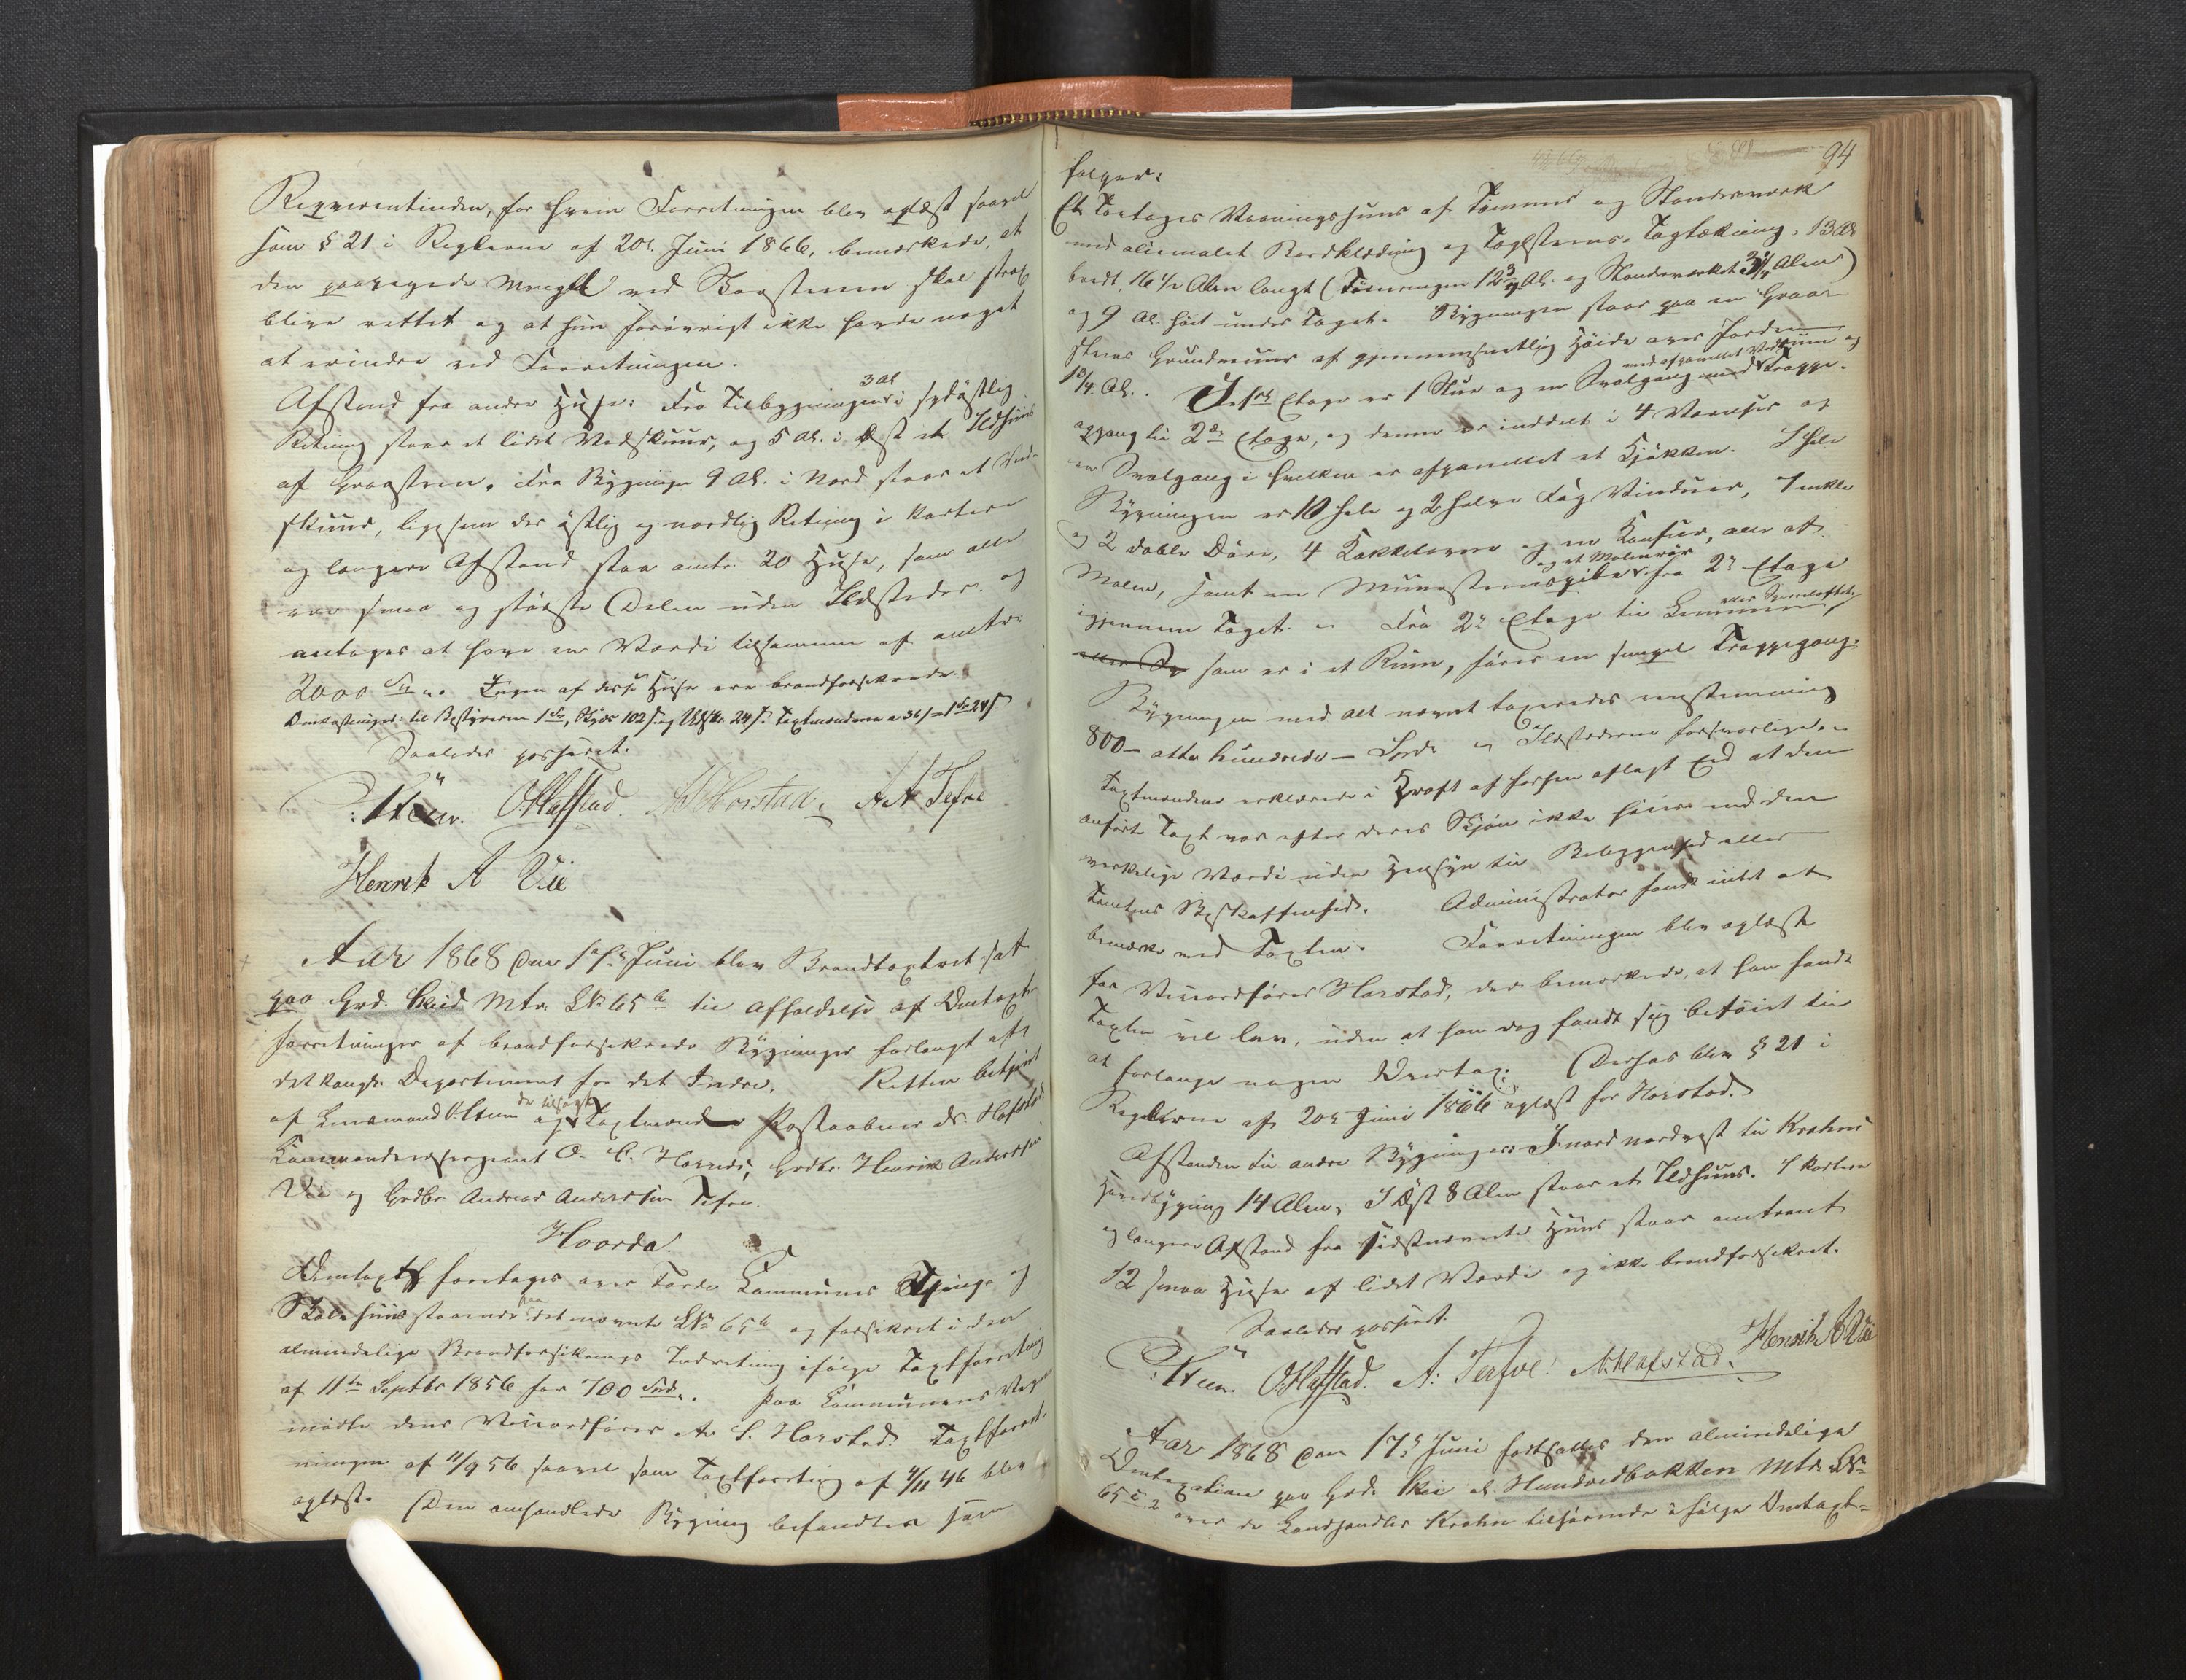 Reqvirentinden, for hvem Forretningen blev oplæst saavel
som § 21 i Reglerne af 20de Juni 1866, bemærkede, at
den paapegede Mangel ved Skorstenen skal strax
blive rettet og at hun forøvrigt ikke havde noget
at erindre ved Forretningen.
Afstand fra andre Huse: Fra Tilbygningen 3 Al i sydøstlig
Retning staar et lidet Vedskuur, og 5 Al. i Øst et Ildhuus
af Graasteen. Fra Bygningen 9 Al. i Nord staar et Ved-
skuur, ligesom der i østlig og nordlig Retning i kortere
og længere Afstand staa omtr. 20 Huse, som alle
ere smaa og største Delen uden Ildsteder og
antages at have en Værdi tilsammen af omtr.
2000 Spd. Ingen af disse Huse ere brandforsikrede.
Omkostninger: til Bestyreren 1 Spd, Skyds 102 s og Udskr. 24 s. Taxtmændene a 36 s = 1 Spd 24 s
Saaledes passeret.
Stüwer. O. Hafstad. A. Horstad. A A Tefre
Henrik A Vie
Aar 1868 den 16de Juni blev Brandtaxtret sat
paa Grd. Skei Mtr. LNo 65 b til Afholdelse af Omtaxt
forretninger af brandforsikrede Bygninger forlangt efter
det kongl. Departement for det Indre. Retten betjent
af Lensmand Stüwer og de tilsagte Taxtmænd Postaabner O. Hafstad,
Kommandeersergeant A. C. Hornes, Grdbr. Henrik Andersen
Vie og Grdbr Andreas Andersen Tefre.
Hvorda:
Omtaxt foretages over Førde Kommunes Thinge- og
Skolehuus staaende paa det nævnte LNo 65 b og forsikret i den
almindelige Brandforsikrings Indretning ifølge Taxtforretning
af 11te Septbr 1856 for 700 Spd. Paa Kommunens Vegne
mødte dens Viceordfører A. S. Horstad. Taxtforret-
ningen af 11/9 56 saavel som Taxtforretning af 4/11 46 blev
oplæst. Den omhandlede Bygning befandtes som
94
følger:
Et Toetages Vaaningshuus af Tømmer og Standerværk
med oliemalet Bordklædning og Taglsteens-Tagtækning, 13 Al
bredt, 16 1/2 Alen langt (Tømmeringen 12 3/4 Al. og Standerværket 3 3/4 Alen)
og 9 Al. høit under Taget. Bygningen staar paa en Graa-
steens Grundmuur af gjennemsnitlig Høide over Jorden
1 3/4 Al. I 1ste Etage er 1 Stue og en Svalgang med afpanellet Vedrum og Trappe-
opgang til 2den Etage, og denne er inddelt i 4 Værelser og
en Svalgang i hvilken er afpanellet et Kjøkken. I hele
Bygningen er 10 hele og 2 halve Fag Vinduer, 7 enkle
og 2 doble Døre, 4 Kakkelovne og en Komfur, alle af
Malm, samt en Muursteenspibe og et Malmrør fra 2den Etage
igjennem Taget. Fra 2den Etage til Lemmen eller Spiseloftet,
som er i et Rum, fører en simpel Trappegang.
Bygningen med alt nævnt taxeredes eenstemmig
800 – atte hundrede – Spdr. Ildstederne forsvarlige.
Taxtmændene erklærede i Kraft af forhen aflagt Eed at den
anførte Taxt var efter deres Skjøn ikke høiere end den
virkelige Værdi uden Hensyn til Beliggenhed eller
Tomtens Beskaffenhed. Administrator fandt intet at
bemærke ved Taxten. Forretningen blev oplæst
for Viceordfører Horstad, der bemærkede, at han fandt
Taxten vel lav, uden at han dog fandt sig beføiet til
at forlange nogen Overtaxt. Derhos blev § 21 i
Reglerne af 20de Juni 1866 oplæst for Horstad.
Afstanden til andre Bygninger: I nord nordvest til Krohns
Hovedbygning 14 Alen, I Øst 8 Alen staar et Ildhuus. I kortere
og længere Afstand fra sidstnævnte Huus staar omtrent
12 smaa Huse af lidet Værdi og ikke brandforsikret.
Saaledes passeret.
Stüwer. O. Hafstad. A: Tefre: A Horstad. Henrik A Vie
Aar 1868 den 17de Juni fortsattes den almindelige
Omtaxation paa Grd. Skei el. Hundvedbakken Mtr. LNo
65 c over de Landhandler Krohn tilhørende ifølge Omtaxt-